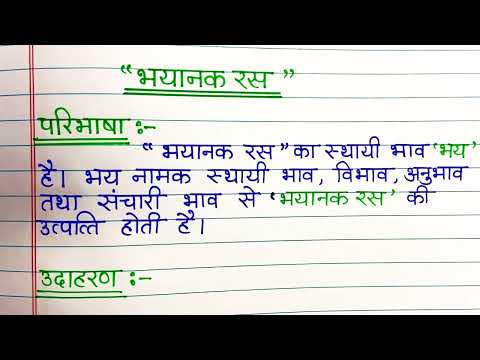 “भयानक रस”
परिभाषा :-
“भयानक रस” का स्थायी भाव ‘भय’
है। भय नामक स्थायी भाव, विभाव, अनुभाव
तथा संचारी भाव से ‘भयानक रस’ की
उत्पत्ति होती है।
उदाहरण :-